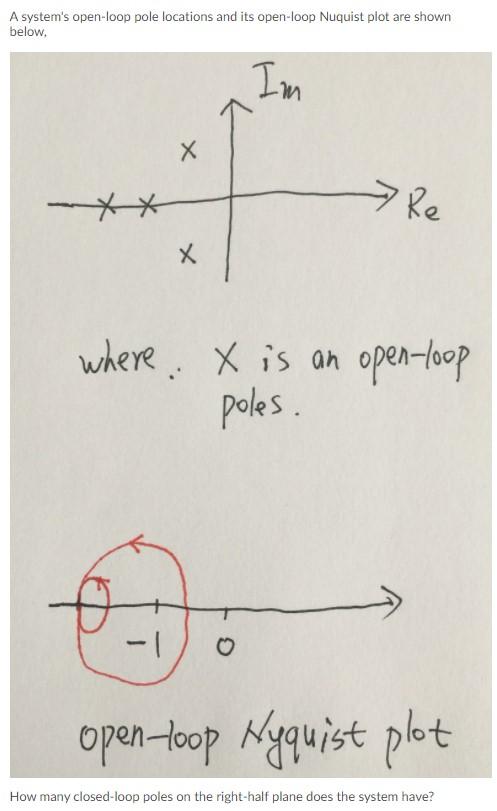 A system's open-loop pole locations and its open-loop Nuquist plot are shown
below,
Im
Re
where : X is an open-loop
poles.
-1 0
open-loop Nyquist plot
How many closed-loop poles on the right-half plane does the system have?